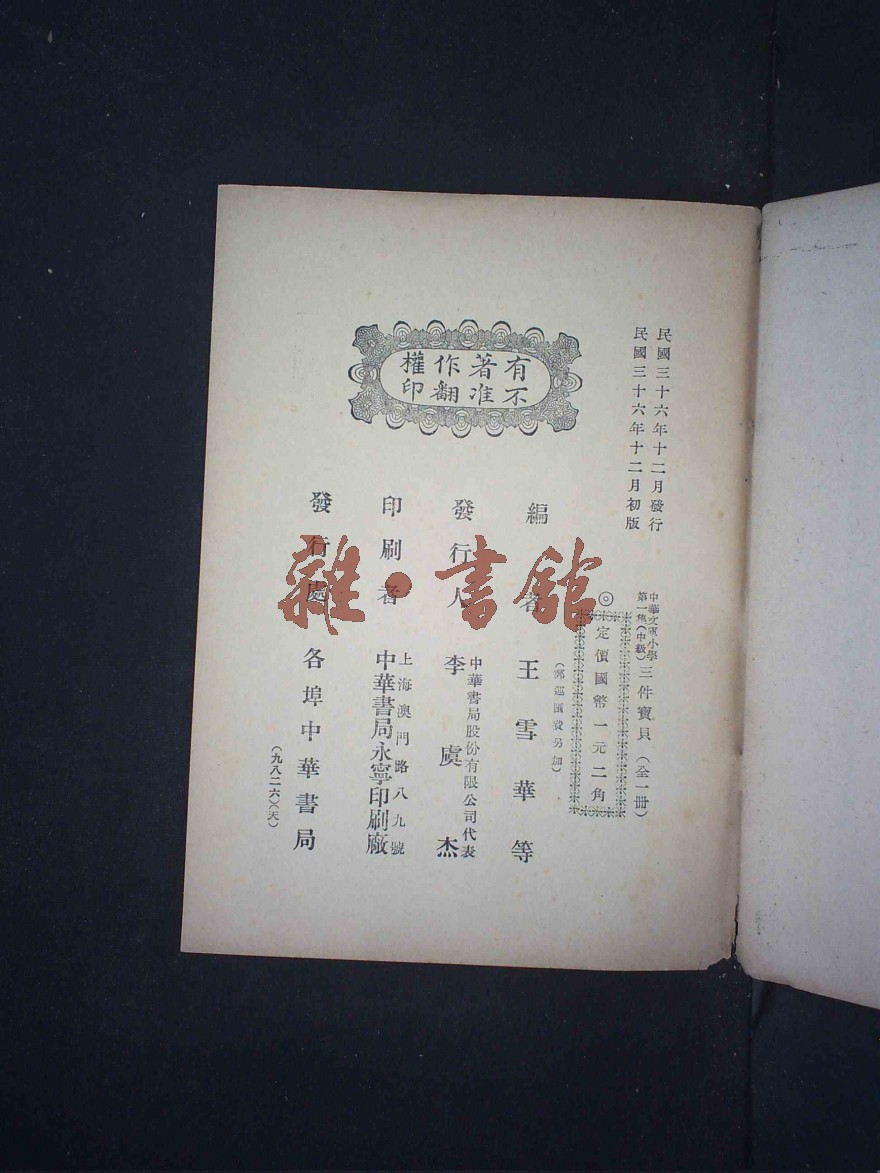 民國三十六年十二月發行
民國三十六年十二月初版
中華文庫小學
第一集(中級)
三件寶貝(全一冊)
◎定價國幣一元二角
(郵運匯費另加)
有著作權
不准翻印
編者 王雪華等
發行人 李虞杰
中華書局股份有限公司代表
印刷者
上海澳門路八九號
中華書局永寧印刷廠
發行處 各埠中華書局
(九八二六)(天)
雜·書館